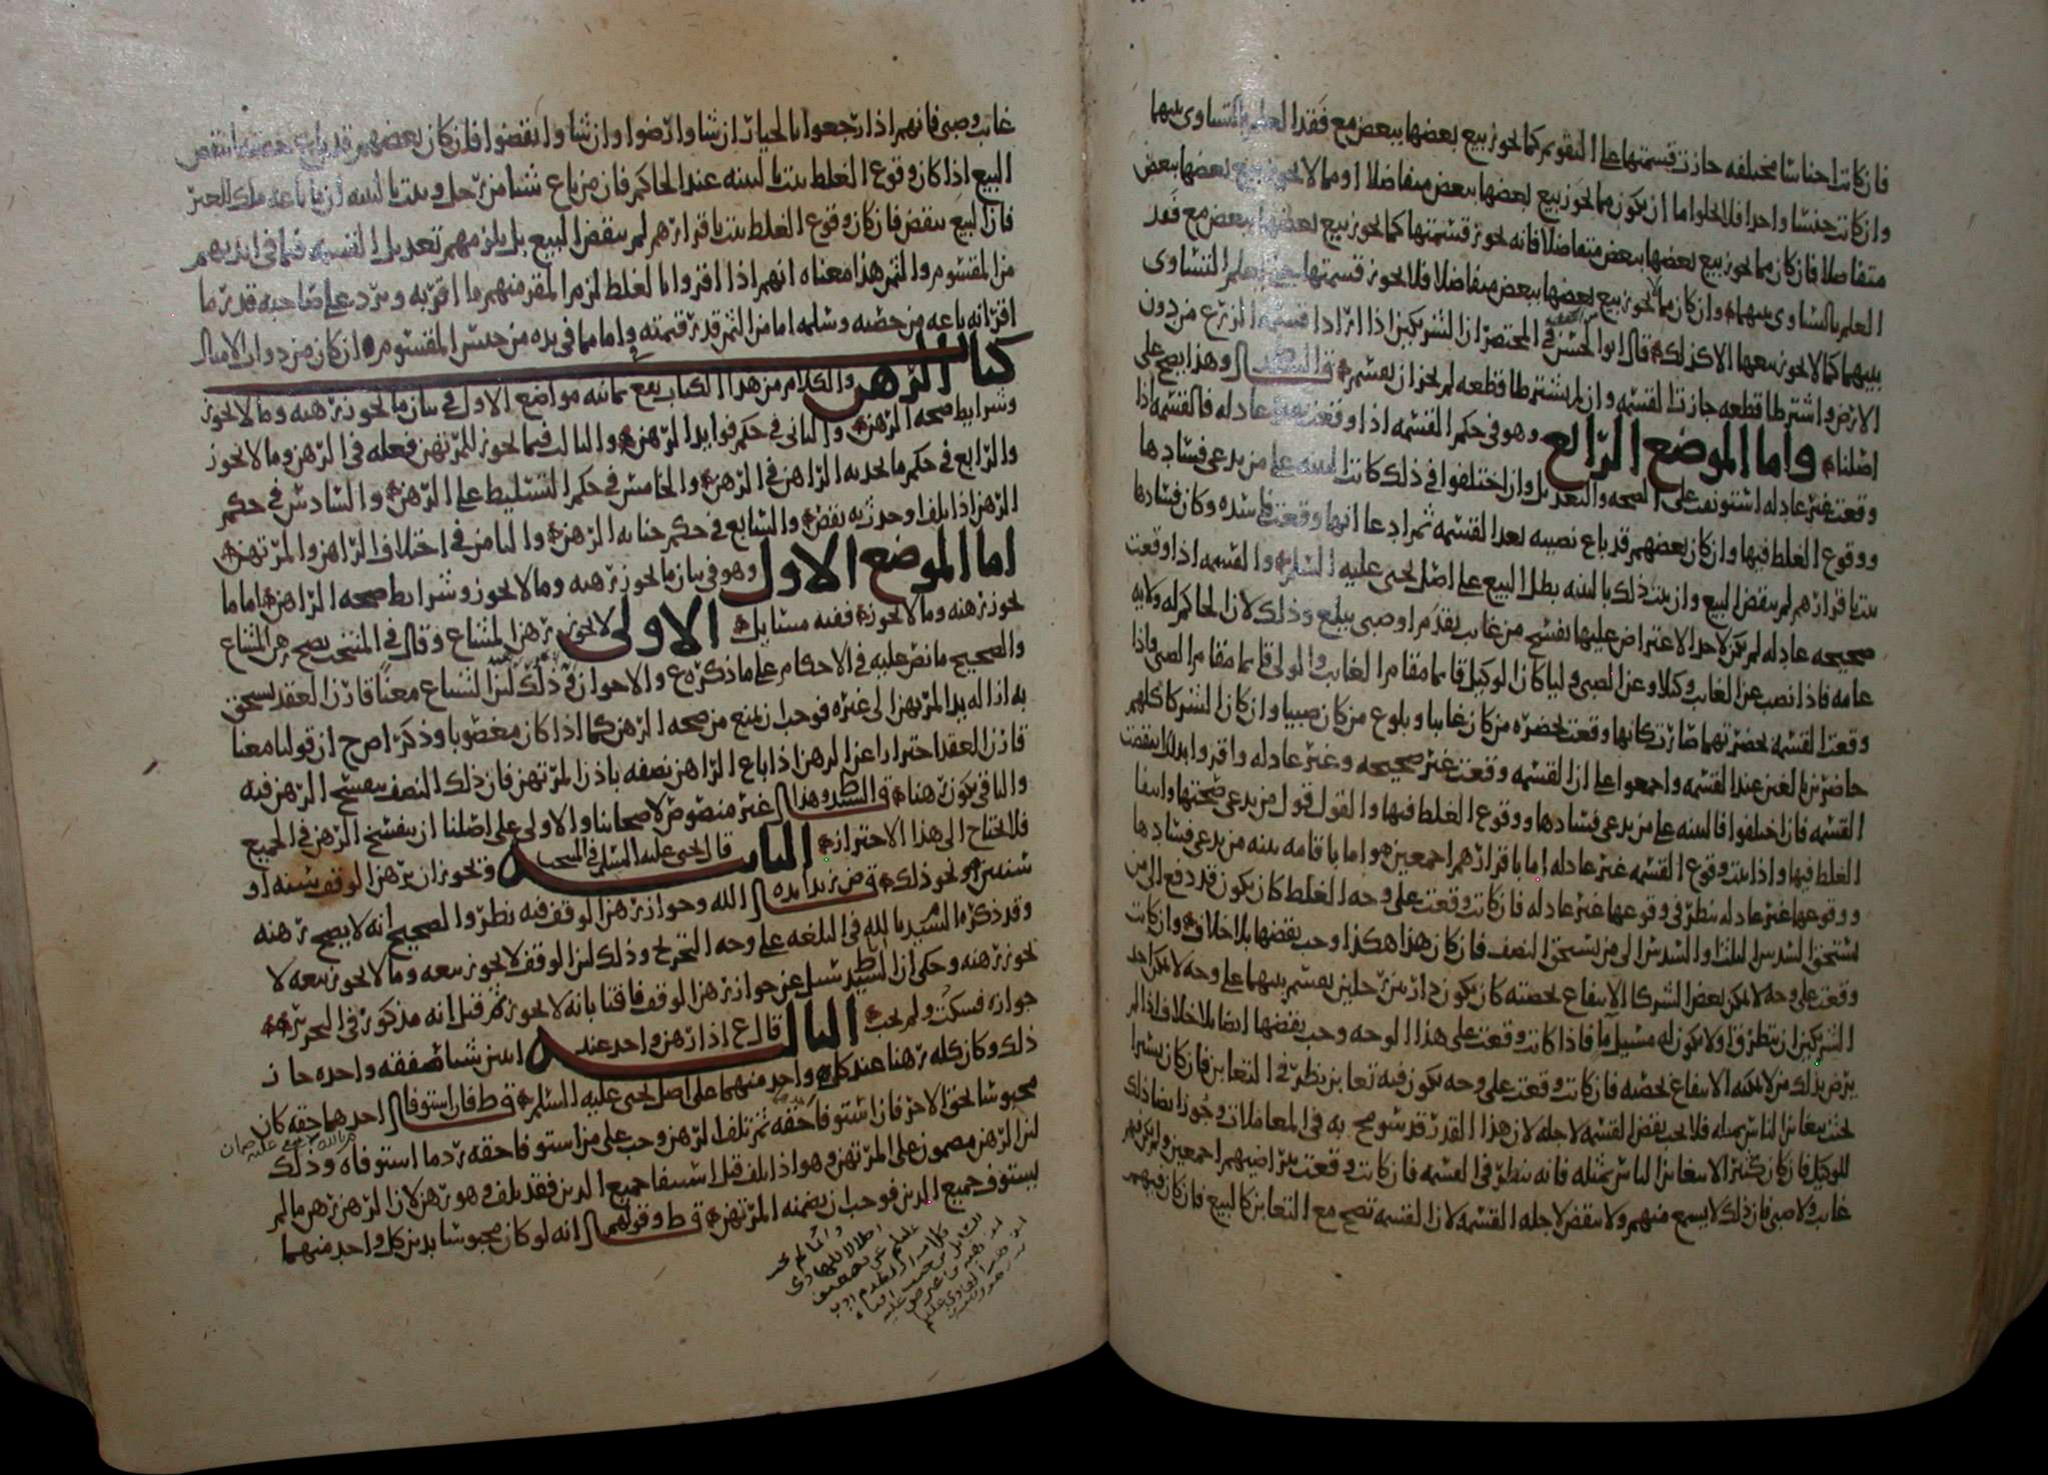 فان كانت اجناسا مختلفه جازت قسمتها على التقويم كما يجوز بيع بعضها ببعض مع فقد العلم بالتساوى بينها
وان كانت جنسا واحدا فلا يخلوا اما ان يكون مما يجوز بيع بعضها ببعض متفاضلا او مما لا يجوز بيع بعضها ببعض
متفاضلا فان كان مما يجوز بيع بعضها ببعض متفاضلا فانه يجوز قسمتها كما يجوز بيع بعضها ببعض مع فقد
العلم بالتساوى بينهما وان كان مما لا يجوز بيع بعضها ببعض متفاضلا فلا يجوز قسمتها حتى يعلم التساوى
بينهما كما لا يجوز بيعها الا كذلك قال ابوالحسن فى المختصر ان الشريكين اذا ارادا قسمة الزرع من دون
الارض واشترطا قطعه جازت القسمه وان لم يشترطا قطعه لم يجز ان يقسم وهذا يصح على
اصلنا واما الموضع الرابع وهو فى حكم القسمه اذا وقعت غير عادله فالقسمه اذا
وقعت غير عادله استونفت على الصحه والتعديل وان اختلفوا فى ذلك كانت البينه على من يدعى فسادها
ووقوع الغلط فيها وان كان بعضهم قد باع نصيبه بعد القسمه ثم ادعا انها وقعت فاسده وكان فسادها
يثبت باقرارهم لم ينقض البيع وان يثبت ذلك بالبينه بطل البيع على اصل يحيى عليه السلم والقسمه اذا وقعت
صحيحه عادله لم يكن لاحد الاعتراض عليها بفسخ من غايب يقدم او صبى يبلغ وذلك لان الحاكم له ولايه
عامه فاذا نصب عن الغايب وكيلا وعن الصبى وليا كان الوكيل قايما مقام الغايب والولى قايما مقام الصبى واذا
وقعت القسمه بحضرتهما صارت كانها وقعت بحضره من كان غايبا وبلوغ من كان صبيا وان كان الشركا كلهم
حاضرين بالغين عند القسمه واجمعوا على ان القسمه وقعت غير صحيحه وغير عادله واقروا بذلك انتقضت
القسمه فان اختلفوا فالبينه على من يدعى فسادها ووقوع الغلط فيها والقول قول من يدعى صحتها وانتفا
الغلط فيها واذا يثبت وقوع القسمه غير عادله اما باقرارهم اجمعين واما باقامه بينه من يدعى فسادها
ووقوعها غير عادله ينظر فى وقوعها غير عادله فان كانت وقعت على وجه الغلط كان يكون قد دفع الى من
يستحق السدس الثلث او السدس الى من يستحق النصف فان كان هذا هكذا وجب نقضها بلا خلاف وان كانت
وقعت على وجه لا يمكن بعض الشركا الانتفاع بحصته كان يكون دار بين رجلين يقسم بينهما على وجه لا يمكن احد
الشريكين ان يتطرقوا ولا يكون له مسيل ما فاذا كانت وقعت على هذا الوجه وجب نقضها ايضا بلا خلاف اذا لم
يرض بذلك من لا يمكنه الانتفاع بحصته فان كانت وقعت على وجه يكون فيه تغابن ينظر فى التغابن فان كان يسيرا
بحيث يتغابن الناس بمثله فلا يجب نقض القسمه لاجله لان هذا القدر قد سومح به فى المعاملات وجوز ايضا ذلك
للوكيل فان كان كثيرا لا يتغابن الناس بمثله فانه ينظر فى القسمه فان كانت وقعت بتراضيهم اجمعين ولم يكن فيهم
غايب ولا صبى فان ذلك لا يسمع منهم ولا ينقض لاجله القسمه لان القسمه تصح مع التغابن كالبيع فان كان فيهم
غايب وصبى فانهم اذا رجعوا بالخيار ان شاوا رضوا وان شاوا نقضوا فان كان بعضهم قد باع حصته انتقض
البيع اذا كان وقوع الغلط يثبت بالبينه عند الحاكم فان من باع شيا من رجل ويثبت بالبينه ان ما باعه ملك للغير
فان البيع ينقض فان كان وقوع الغلط يثبت باقرارهم لم ينقض البيع بل يلزمهم تعديل القسمه فيما فى ايديهم
من المقسوم والثمن هذا معناه انهم اذا اقروا بالغلط لزم المقر منهم ما اقر به ويرد على صاحبه قدر ما
اقر انه باعه من حصته وسلمه اما من الثمن قدر قيمته واما مما فى يده من جنس المقسوم ان كان من ذوات الامثال
كتاب الرهن والكلام من هذا الكتاب يقع ثمانيه مواضع الاول فى بيان ما يجوز رهنه وما لا يجوز
وشرايط صحه الرهن والثانى فى حكم فوايد الرهن والثالث فيما يجوز للمرتهن فعله فى الرهن وما لا يجوز
والرابع فى حكم ما يحدثه الراهن فى الرهن والخامس فى حكم التسليط على الرهن والسادس فى حكم
الرهن اذا تلف او حدث به نقص والسابع فى حكم جنايه الرهن والثامن فى اختلاف الراهن والمرتهن
اما الموضع الاول وهو فى بيان ما يجوز رهنه وما لا يجوز وشرايط صحه الراهن اما ما
يجوز رهنه وما لا يجوز ففيه مسايل الاولى لا يجوز رهن المشاع وقال فى المنتخب يصح رهن المشاع
والصحيح ما نص عليه فى الاحكام على ما ذكره ع والاخوان فى ذلك لان الشياع معنا قارن العقد يستحق
به ازاله يد المرتهن الى غيره فوجب ان يمنع من صحه الرهن كما اذا كان مغصوبا وذكر اصح ان قولنا معنا
قارن العقد احترازا عن الرهن اذا باع الراهن نصفه باذن المرتهن فان ذلك النصف ينفسخ الرهن فيه
والباقى يكون رهنا قال السيد ط وهذا غير منصوص لاصحابنا والاولى على اصلنا ان ينفسخ الرهن فى الجميع
فلا يحتاج الى هذا الاحتراز الثانيه قال يحيى عليه السلم فى المنتخب ويجوز ان يرهن الوقف سنه او
سنتين ونحو ذلك قال زيدا بده الله وجواز رهن الوقف فيه نظر والصحيح انه لا يصح رهنه
وقد ذكره السيد م بالله فى البلغه على وجه التخريج وذلك لان الوقف لا يجوز بيعه وما لا يجوز بيعه لا
يجوز رهنه وحكى ان السيد ط سئل عن جواز رهن الوقف فافتا بانه لا يجوز ثم قيل انه مذكور فى التحرير
جوازه فسكت ولم يجب الثالثه قال ع اذا رهن واحد عند اثنين شيا صفقه واحده جاز
ذلك وكان كله رهنا عند كل واحد منهما على اصل يحيى عليه السلم قال ط فان استوفا احدهما حقه كان
محبوسا بحق الاخر فان استوفا حقه ثم تلف الرهن وجب على من استوفا حقه رد ما استوفاه وذلك
لان الرهن مضمون على المرتهن وهو اذا تلف قبل استيفا جميع الدين فقد تلف وهو رهن لان الرهن رهن ما لم
يستوف جميع الدين فوجب ان يضمنه المرتهن قال ط وقولهم انه لو كان محبوسا بدين كل واحد منهما